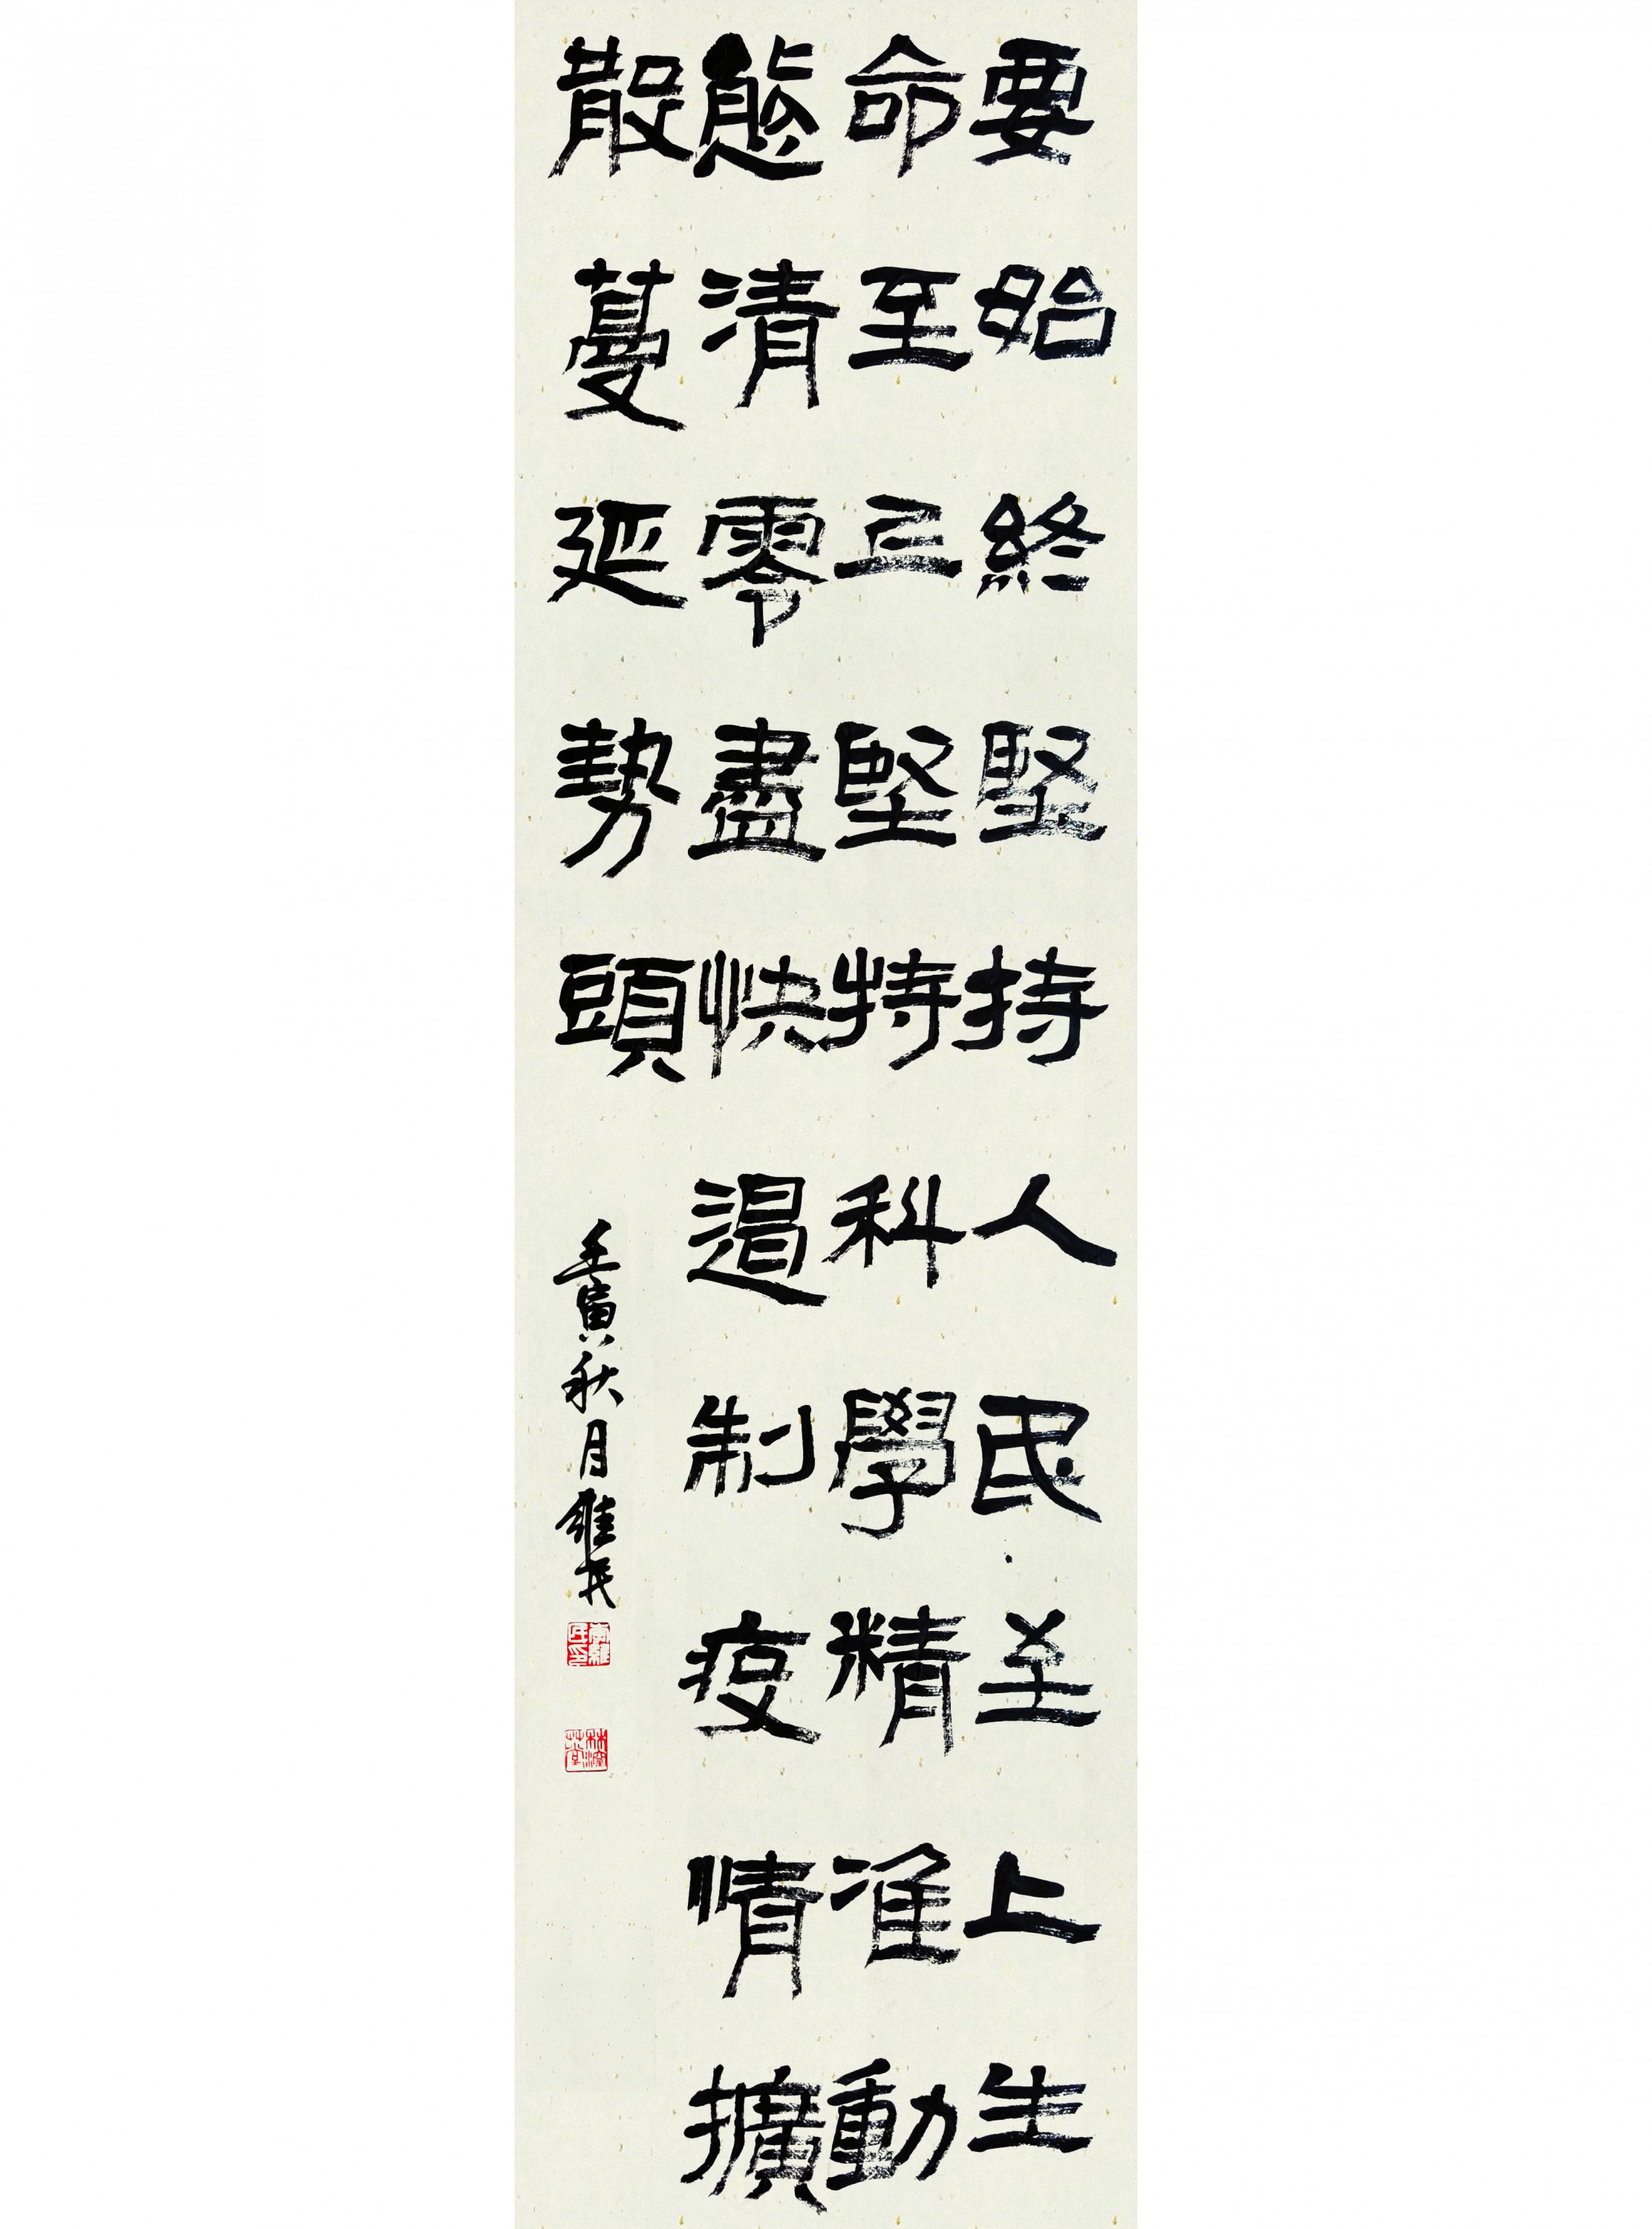 要始終堅持人民至上生
命至上堅持科學精准動
態清零盡快遏制疫情擴
散蔓延勢頭
壬寅秋月維民